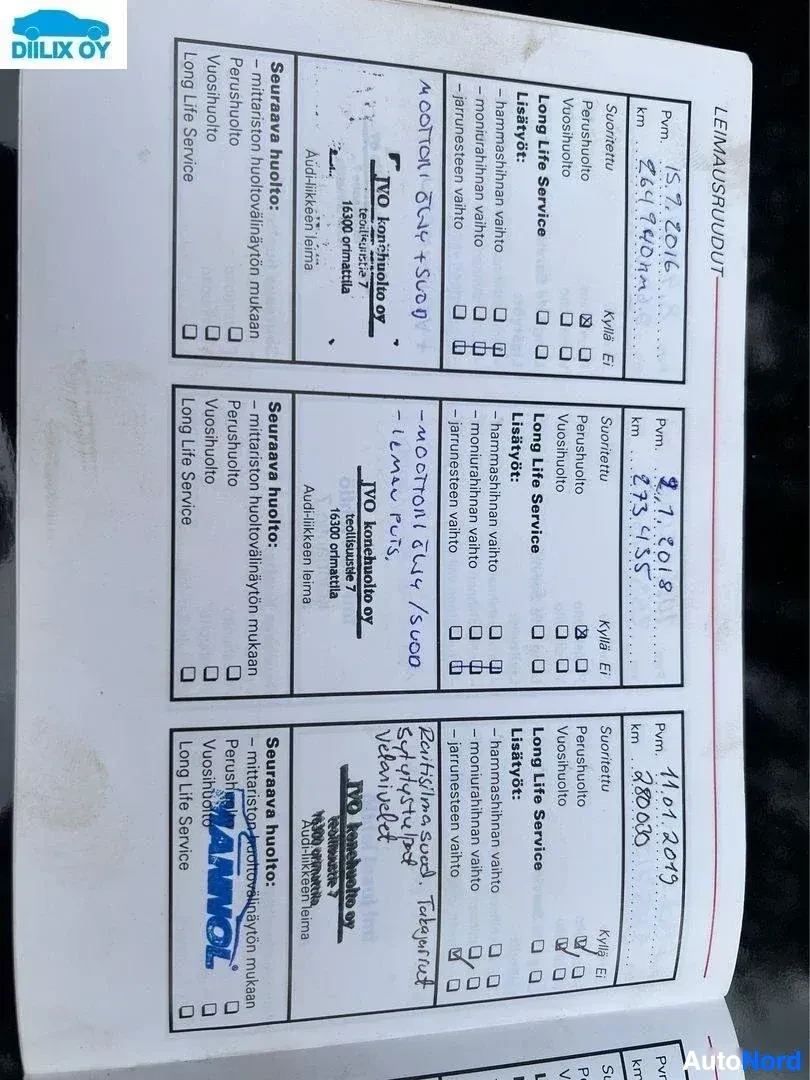 DIILIX OY
LEIMAUSRUUDUT
Pvm. 15.9.2016
km 264940
Suoritettu Kyllä Ei
Perushuolto ☒ ☐
Vuosihuolto ☐ ☐
Long Life Service ☐ ☐
Lisätyöt:
– hammashihnan vaihto ☐ ☐
– moniurahihnan vaihto ☐ ☐
– jarrunesteen vaihto ☐ ☐
MOOTTORI ÖLJY + SUOD
IVO konehuolto oy
teollisuustie 7
16300 orimattila
Audi-liikkeen leima
Seuraava huolto:
– mittariston huoltovälinäytön mukaan
Perushuolto ☐
Vuosihuolto ☐
Long Life Service ☐
Pvm. 2.1.2018
km 273435
Suoritettu Kyllä Ei
Perushuolto ☒ ☐
Vuosihuolto ☐ ☐
Long Life Service ☐ ☐
Lisätyöt:
– hammashihnan vaihto ☐ ☐
– moniurahihnan vaihto ☐ ☐
– jarrunesteen vaihto ☐ ☐
– MOOTTORI ÖLJY / SUOD
– ILMAN PUTS.
IVO konehuolto oy
teollisuustie 7
16300 orimattila
Audi-liikkeen leima
Seuraava huolto:
– mittariston huoltovälinäytön mukaan
Perushuolto ☐
Vuosihuolto ☐
Long Life Service ☐
Pvm. 11.01.2019
km 280000
Suoritettu Kyllä Ei
Perushuolto ☑ ☐
Vuosihuolto ☑ ☐
Long Life Service ☐ ☐
Lisätyöt:
– hammashihnan vaihto ☐ ☐
– moniurahihnan vaihto ☐ ☐
– jarrunesteen vaihto ☑ ☐
Raitisilmasuod. Takajarrut
Sytytystulpat
IVO konehuolto oy
teollisuustie 7
16300 orimattila
Audi-liikkeen leima
Seuraava huolto:
– mittariston huoltovälinäytön mukaan
Perush ☐
Vuosihuolto ☐
Long Life Service ☐
MANNOL
Pvm.
km
AutoNord